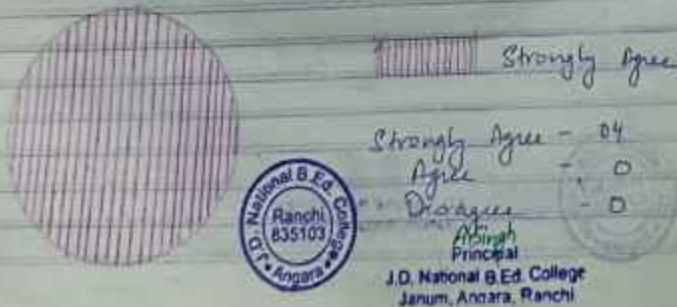 Strongly Agree
Strongly Agree - 04
Agree - 0
Disagree - 0
J.D. National B.Ed. College
Ranchi
835103
Angara
ASingh
Principal
J.D. National B.Ed. College
Janum, Angara, Ranchi